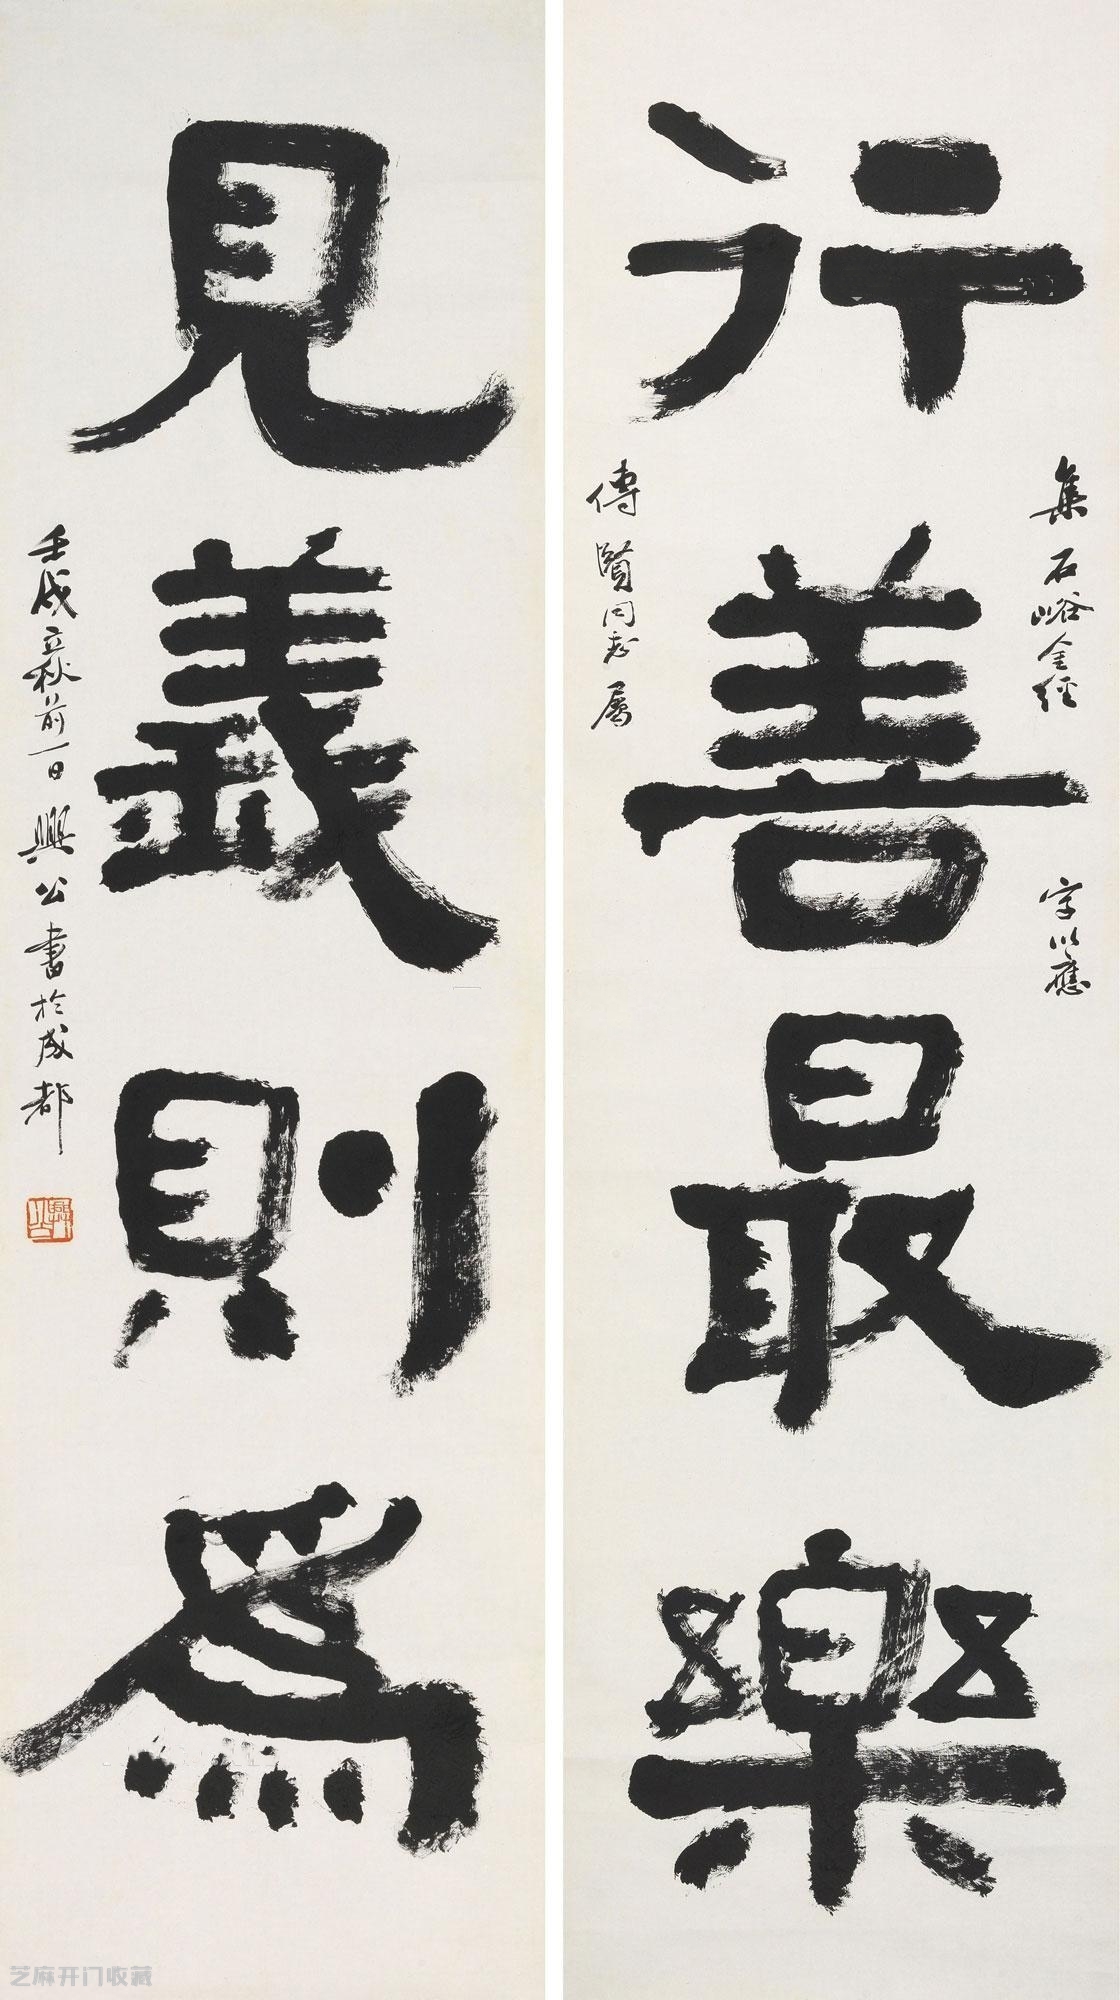 行善最樂
集石峪金經字以應
傳賢同志屬
見義則爲
壬戌立秋前一日興公書於成都
芝麻开门收藏